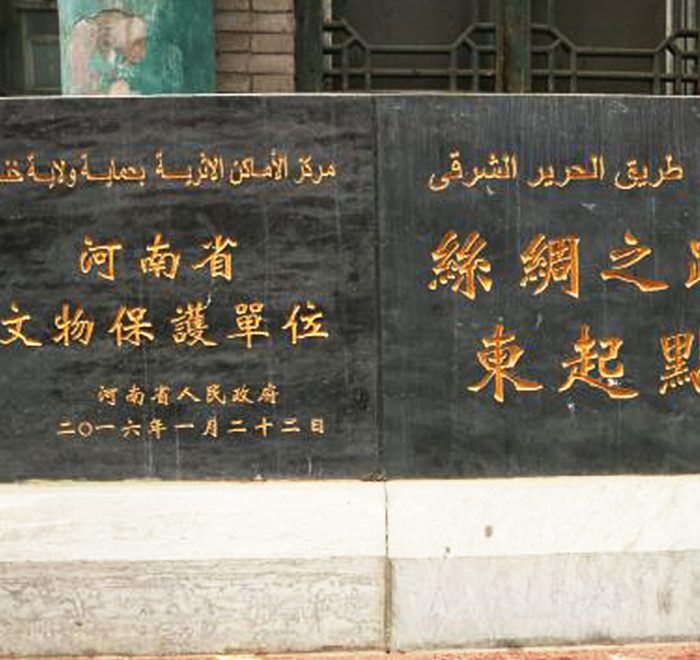 مركز الأماكن الاثرية بحماية ولاية
河南省
文物保護單位
河南省人民政府
二〇一六年一月二十二日
طريق الحرير الشرقي
絲綢之
東起點